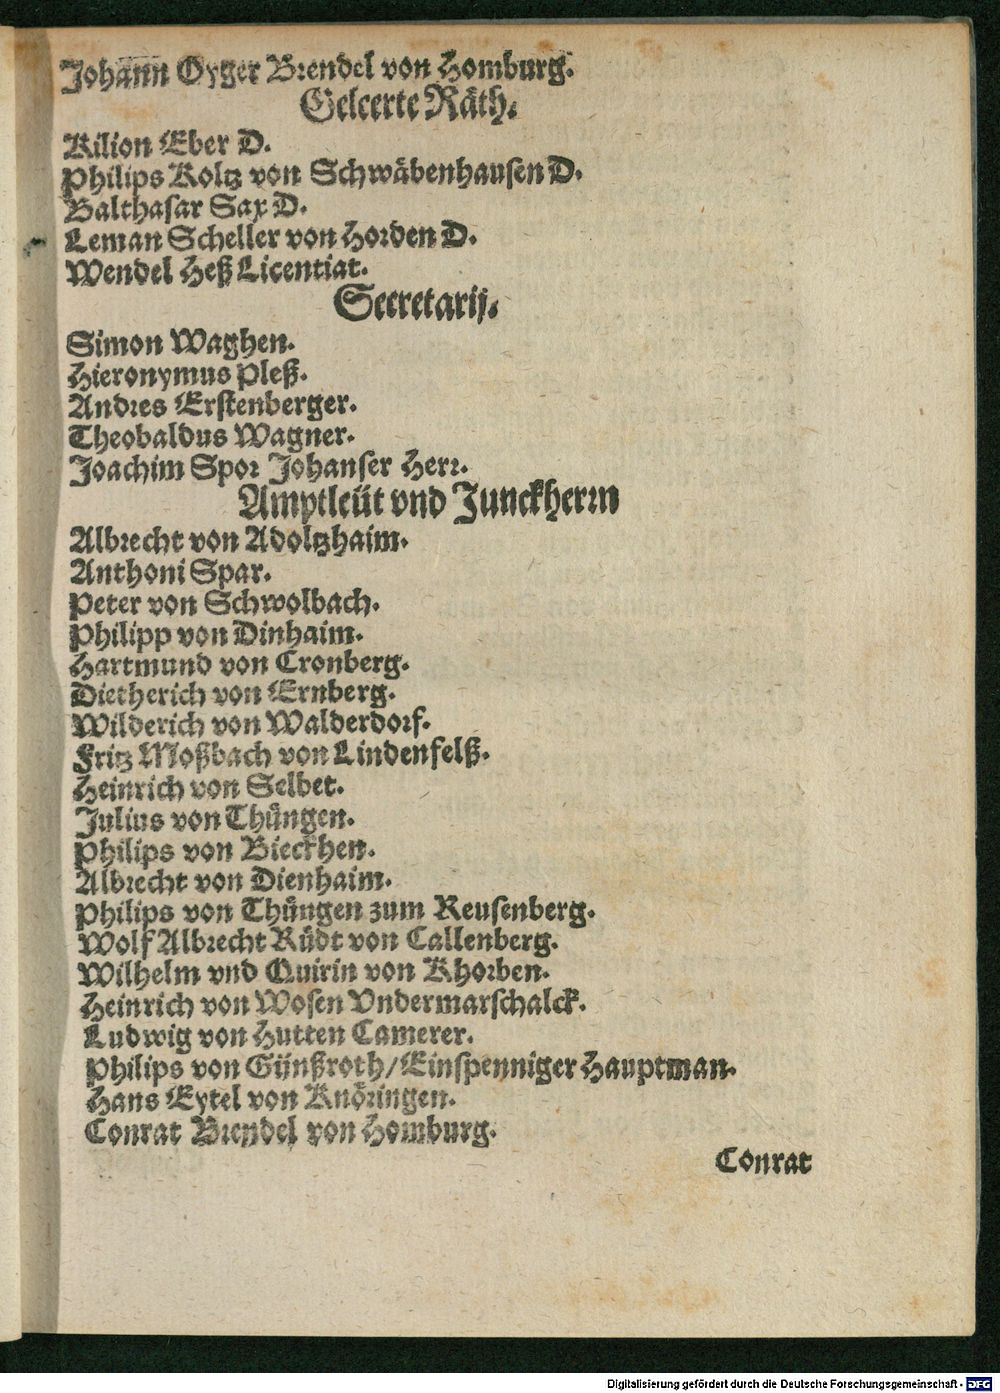 Johann Oyger Brendel von Homburg.
Geleerte Räth.
Kilion Eber D.
Philips Koltz von Schwäbenhausen D.
Balthasar Sax D.
Leman Scheller von Horden D.
Wendel Heß Licentiat.
Secretarij.
Simon Waghen.
Hieronymus Pleß.
Andres Erstenberger.
Theobaldus Wagner.
Joachim Spor Johanser Herr.
Amptleüt vnd Junckherrn
Albrecht von Adoltzhaim.
Anthoni Spar.
Peter von Schwolbach.
Philipp von Dinhaim.
Hartmund von Cronberg.
Dietherich von Ernberg.
Wilderich von Walderdorf.
Fritz Moßbach von Lindenfelß.
Heinrich von Selbet.
Julius von Thüngen.
Philips von Bieckhen.
Albrecht von Dienhaim.
Philips von Thüngen zum Reusenberg.
Wolf Albrecht Rüdt von Callenberg.
Wilhelm vnd Quirin von Khorben.
Heinrich von Wosen Vndermarschalck.
Ludwig von Hutten Camerer.
Philips von Günßroth/Einspenniger Hauptman.
Hans Eytel von Knöringen.
Conrat Brendel von Homburg.
Conrat
Digitalisierung gefördert durch die Deutsche Forschungsgemeinschaft - DFG